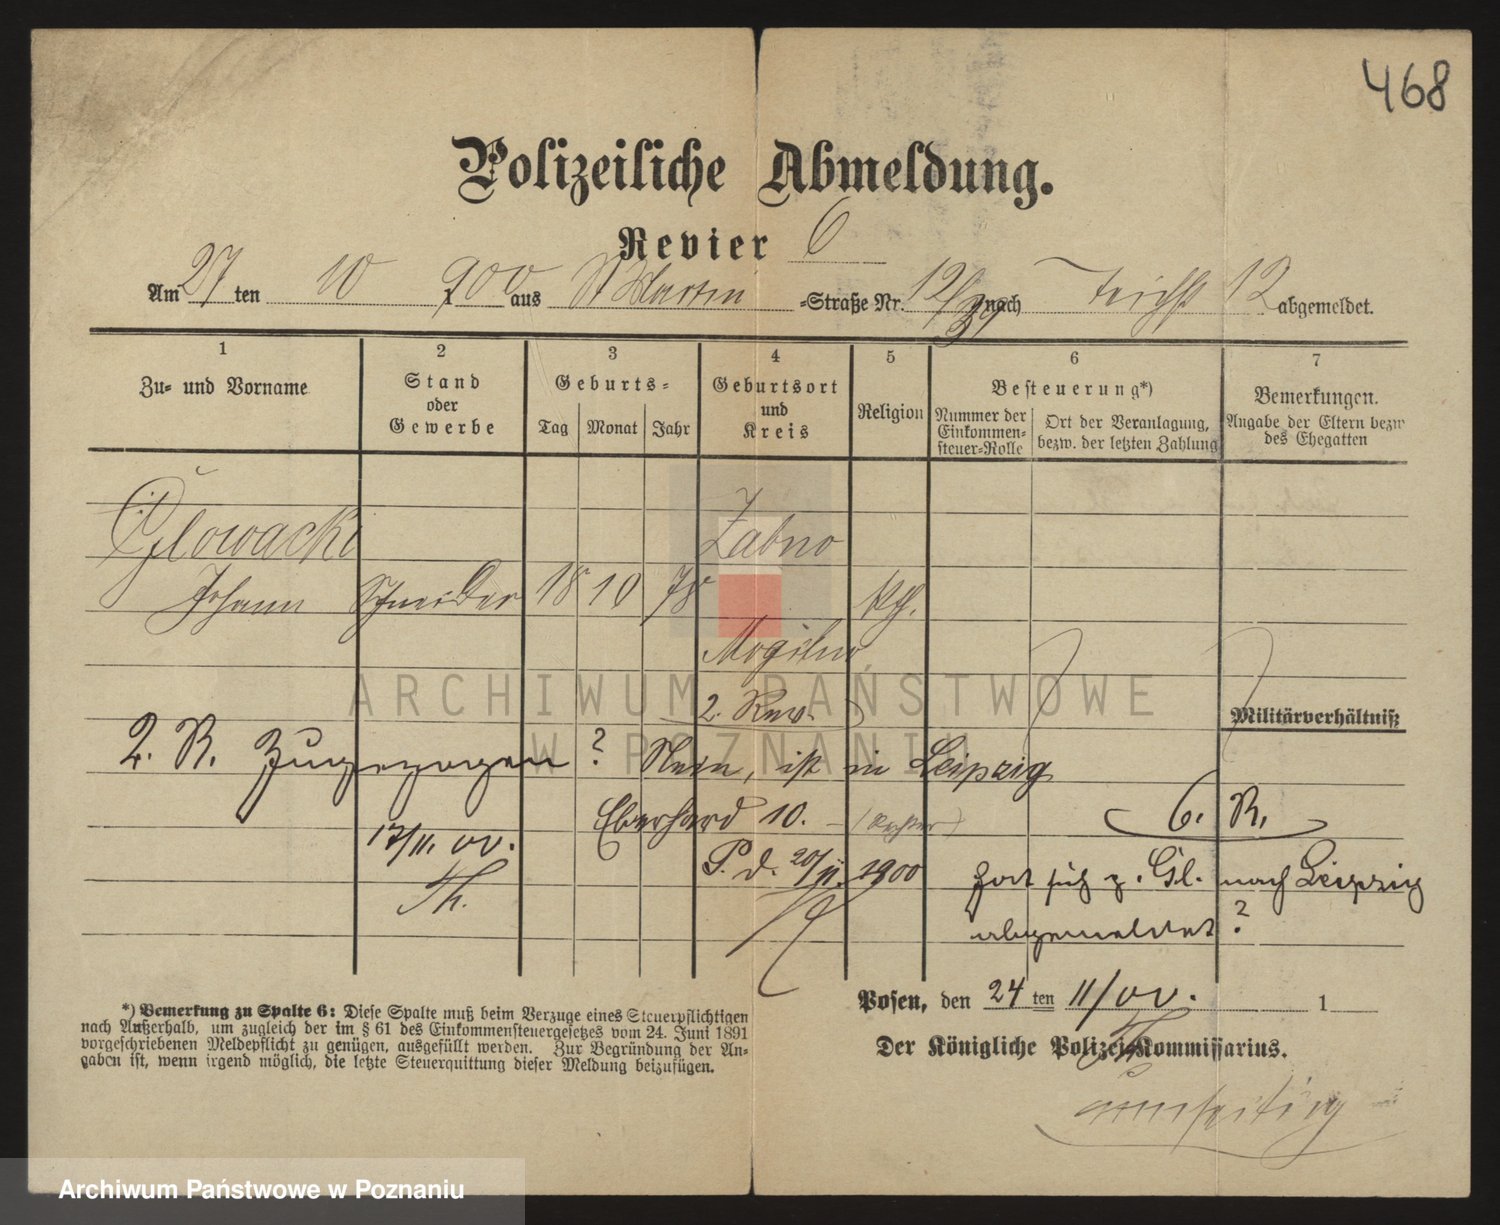 468
Polizeiliche Abmeldung.
Revier 6
Am 27 ten 10 1900 aus St Martin -Straße Nr. 12/ nach Teichst 12 abgemeldet.
1 2 3 4 5 6 7
Zu- und Vorname
Stand oder Gewerbe
Geburts-
Tag Monat Jahr
Geburtsort und Kreis
Religion
Besteuerung*)
Nummer der Einkommen-steuer-Rolle
Ort der Veranlagung, bezw. der letzten Zahlung
Bemerkungen.
Angabe der Eltern bezw des Ehegatten
Glowacki Żabno
Johann Schneider 18 10 78 kth.
Mogilno
2. Rev.
Militärverhältniß
2. R. Zugezogen? Nein, ist in Leipzig
Eberhard 10. 6. R.
17/11. 00. P. d. 20/11. 1900
Th. hat sich p. Gl. nach Leipzig
abgemeldet?
Posen, den 24 ten 11/00. 1
Der Königliche Polizei-Kommissarius.
Th.
umseitig
*) Bemerkung zu Spalte 6: Diese Spalte muß beim Verzuge eines Steuerpflichtigen
nach Außerhalb, um zugleich der im § 61 des Einkommensteuergesetzes vom 24. Juni 1891
vorgeschriebenen Meldepflicht zu genügen, ausgefüllt werden. Zur Begründung der An-
gaben ist, wenn irgend möglich, die letzte Steuerquittung dieser Meldung beizufügen.
ARCHIWUM PAŃSTWOWE
W POZNANIU
Archiwum Państwowe w Poznaniu